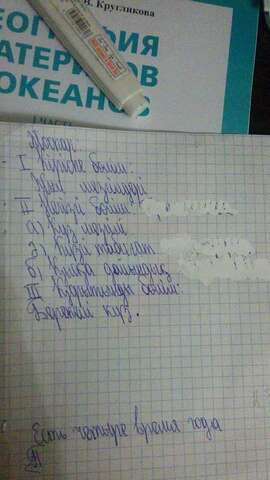 В. Кругликова
ГЕОГРАФИЯ
МАТЕРИКОВ
ОКЕАНОВ
Жоспар:
I Кіріспе бөлім:
Жыл мезгілдері
II Негізгі бөлім:
а) Күз мезгілі
ә) Күзгі табиғат
б)
III Қорытынды бөлім:
күз.
Есть четыре времени года